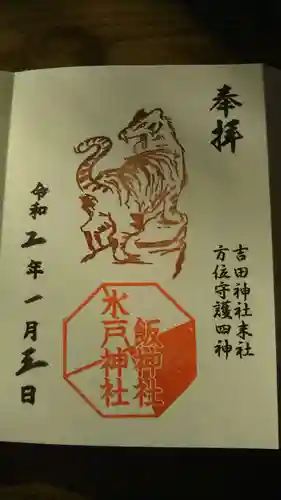 奉拝
吉田神社末社
方位守護四神
飯神社
水戸神社
令和五年一月五日